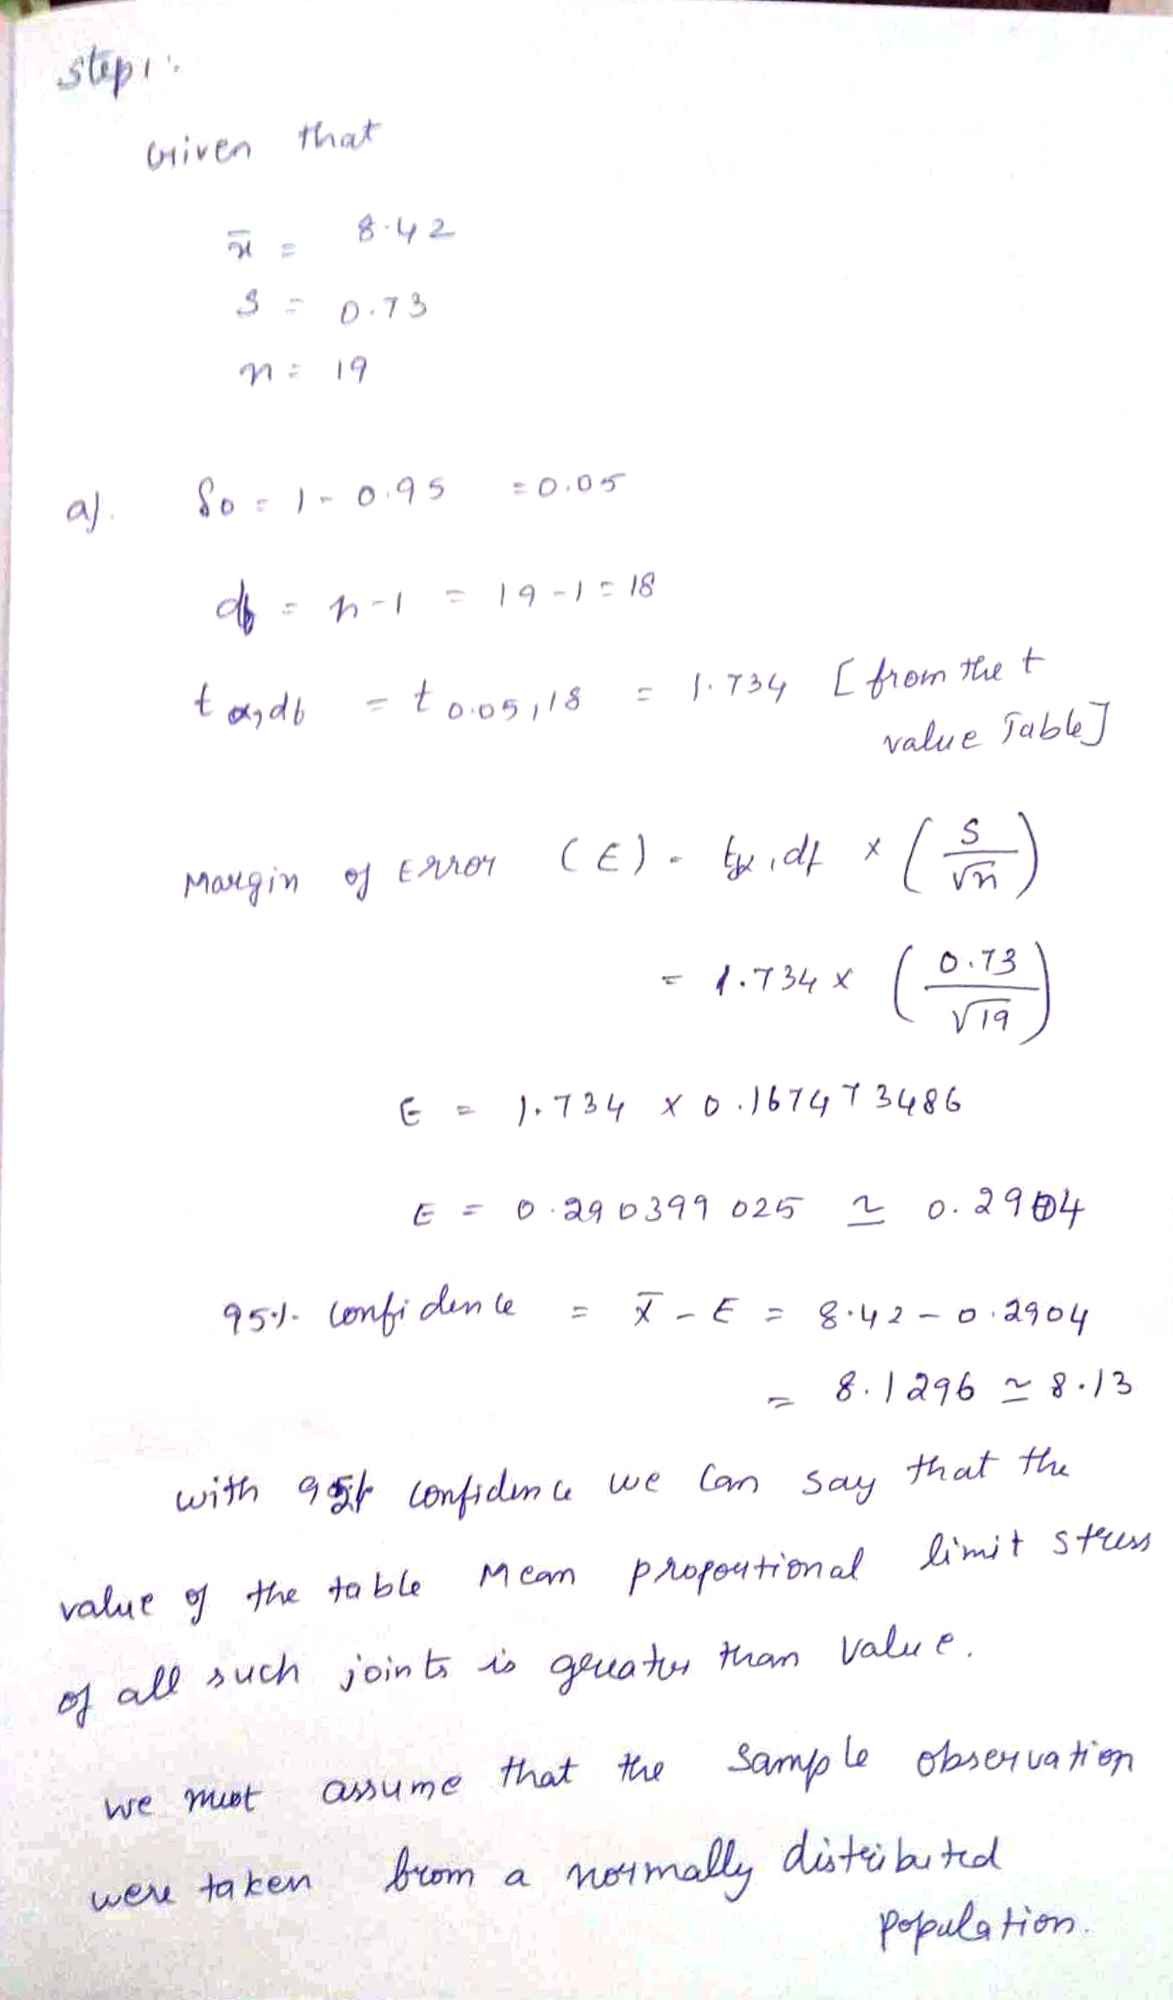 step 1:
Given that
x̄ = 8.42
S = 0.73
n = 19
a). So = 1 - 0.95 = 0.05
df = n-1 = 19-1 = 18
t α, df = t 0.05, 18 = 1.734 [from the t
value Table]
Margin of Error (E) = tα, df × (S/√n)
= 1.734 × (0.73/√19)
E = 1.734 × 0.167473486
E = 0.290399025 ≃ 0.2904
95%. confidence = x̄ - E = 8.42 - 0.2904
= 8.1296 ≃ 8.13
with 95% confidence we can say that the
value of the table Mean proportional limit stress
of all such joints is greater than value.
we must assume that the sample observation
were taken from a normally distributed
population.